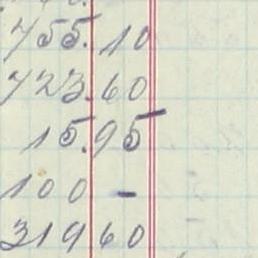 755.10
723.60
15.95
100 -
319 60